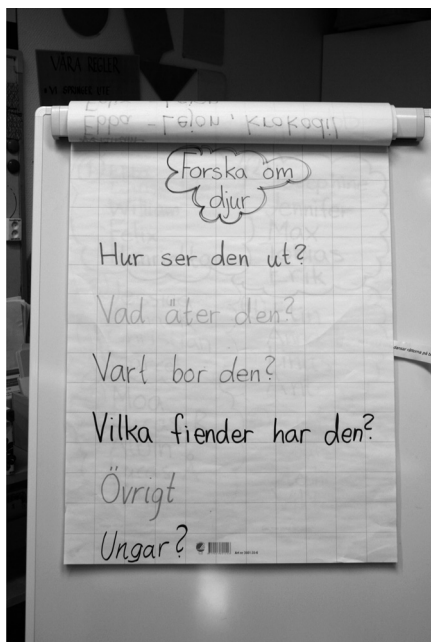 VÅRA REGLER
Ebba - Lejon, krokodil
Forska om
djur
Hur ser den ut?
Vad äter den?
Vart bor den?
Vilka fiender har den?
Övrigt
Ungar?